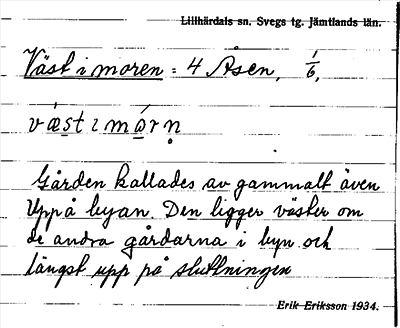 Lillhärdals sn. Svegs tg. Jämtlands län.
Väst i moren = 4 Åsen, 1/6,
Gården kallades av gammalt även
Uppå byan. Den ligger väster om
de andra gårdarna i byn och
längst upp på sluttningen
Erik Eriksson 1934.